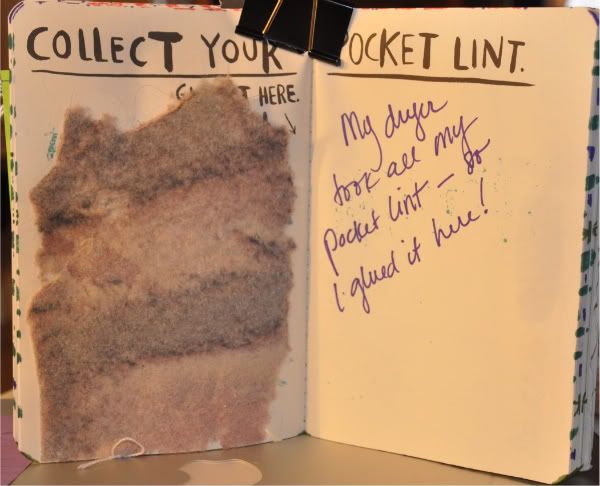 COLLECT YOUR POCKET LINT.
HERE.
My dryer
took all my
pocket lint — so
I glued it here!